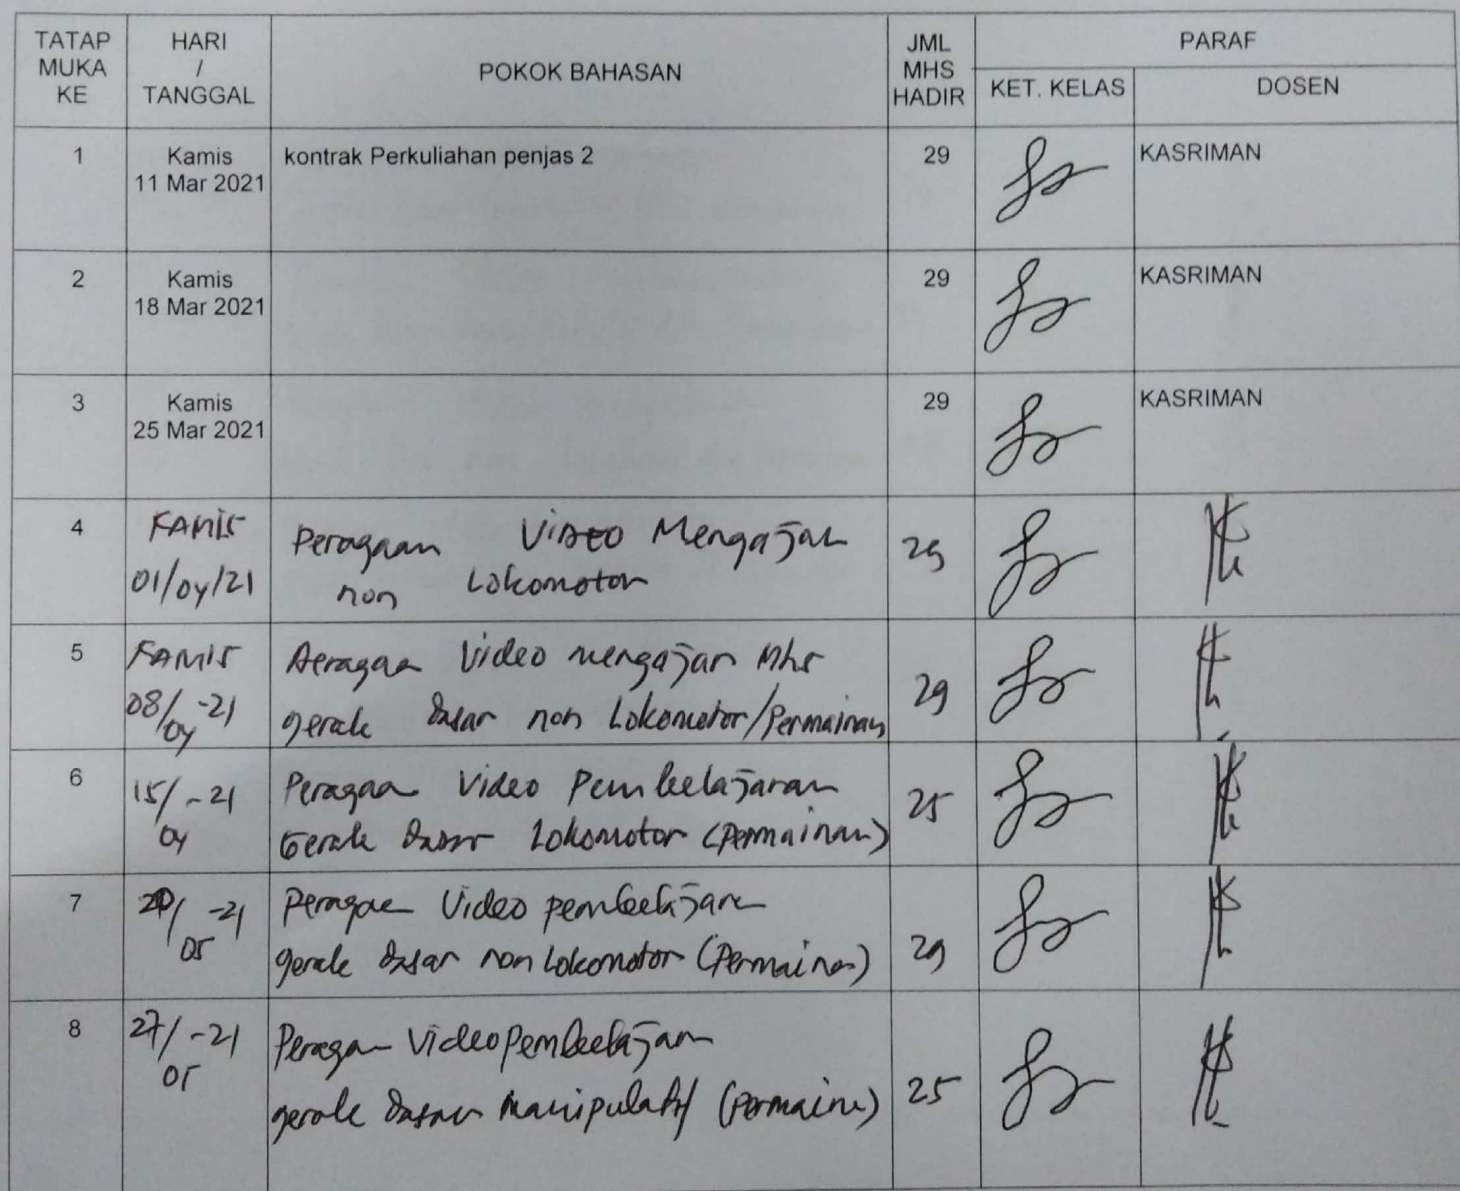 TATAP MUKA KE HARI / TANGGAL POKOK BAHASAN JML MHS HADIR PARAF
KET. KELAS DOSEN
1 Kamis kontrak Perkuliahan penjas 2 29 KASRIMAN
11 Mar 2021
2 Kamis 29 KASRIMAN
18 Mar 2021
3 Kamis 29 KASRIMAN
25 Mar 2021
4 KAMIS Peragaan Video Mengajar 29
01/04/21 non Lokomotor
5 KAMIS Peragaa Video mengajar Mhs 29
08/04-21 gerak dasar non Lokomotor/Permainan
6 15/04-21 Peragaa Video Pembelajaran 25
Gerak Dasar Lokomotor (Permainan)
7 20/05-21 Peragaa Video pembelajara
gerak dasar non Lokomotor (Permainan) 29
8 27/05-21 Peragaa Video pembelajaran
gerak dasar manipulatif (Permaina) 25